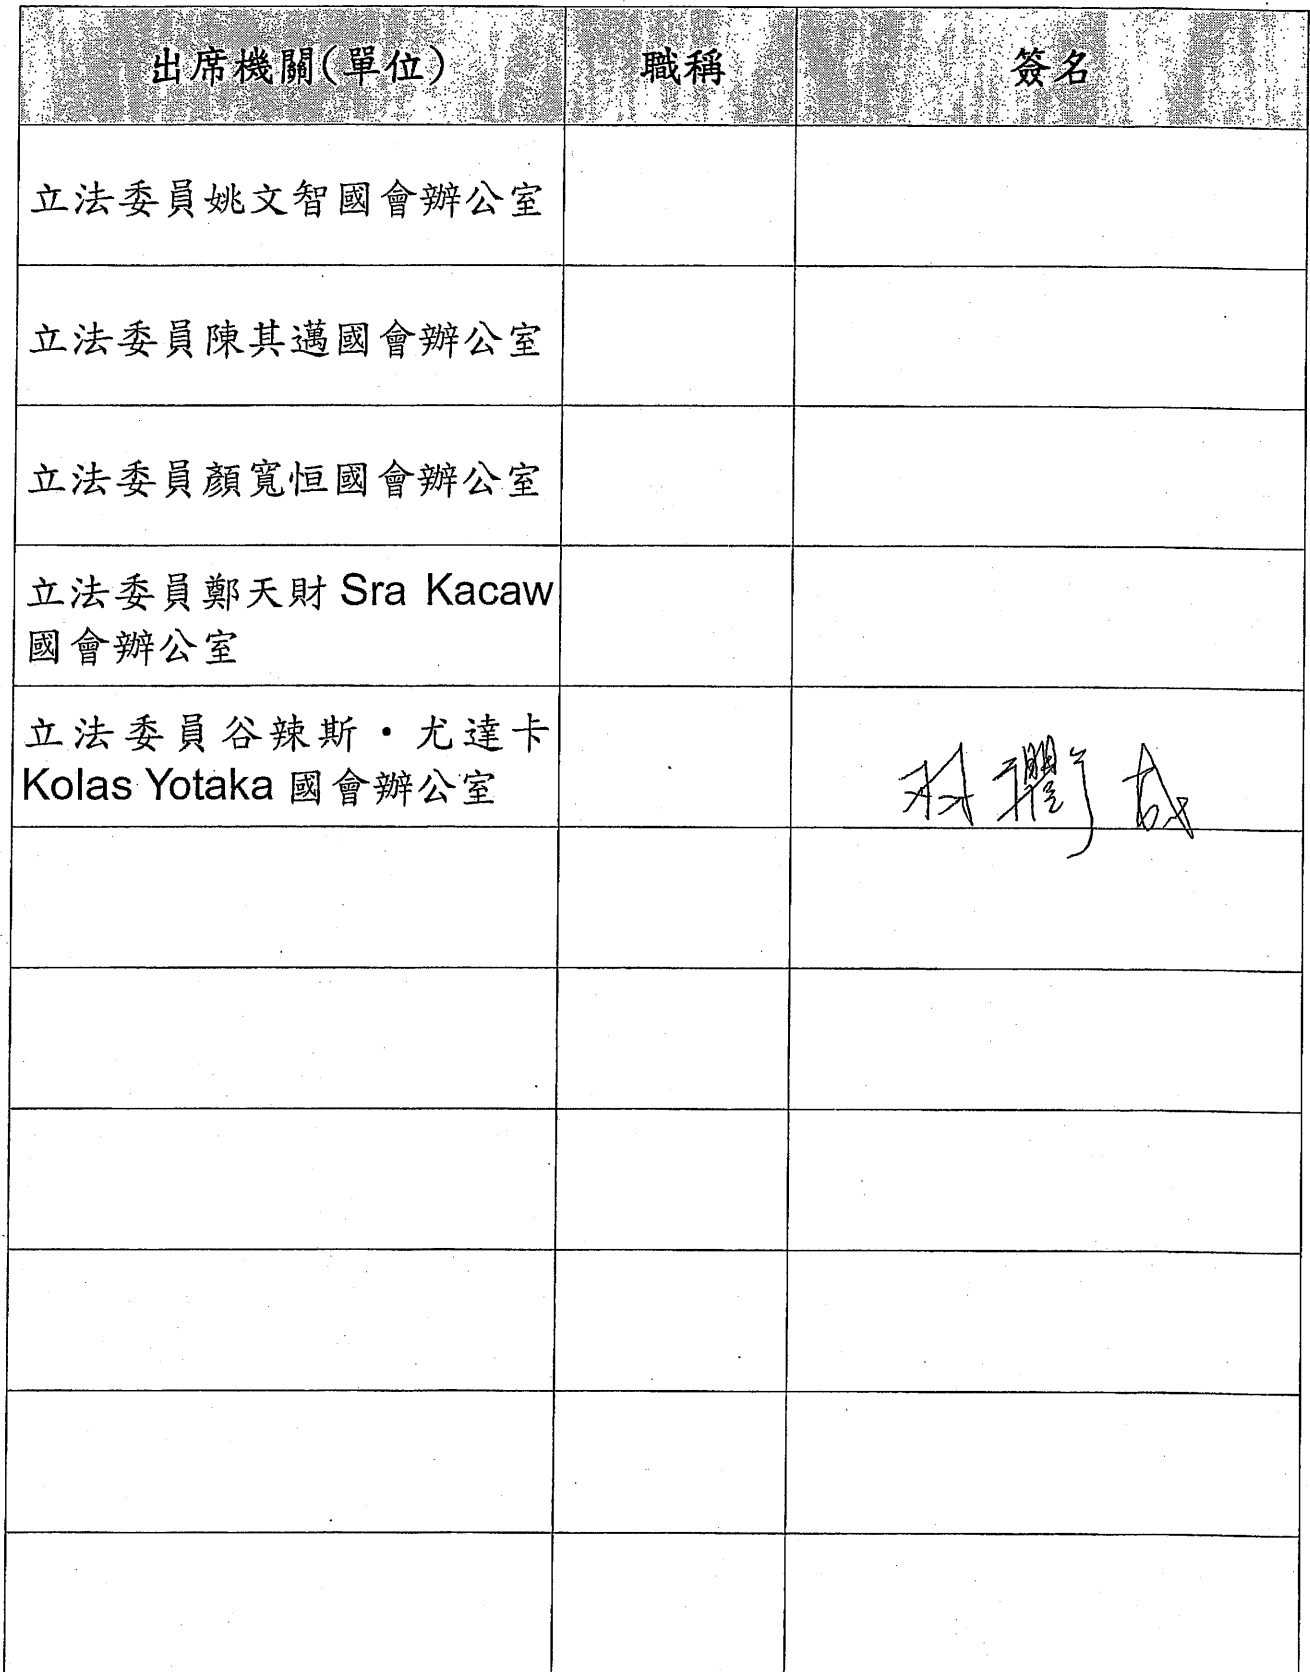 出席機關(單位) 職稱 簽名
立法委員姚文智國會辦公室
立法委員陳其邁國會辦公室
立法委員顏寬恒國會辦公室
立法委員鄭天財 Sra Kacaw
國會辦公室
立法委員谷辣斯・尤達卡
Kolas Yotaka 國會辦公室